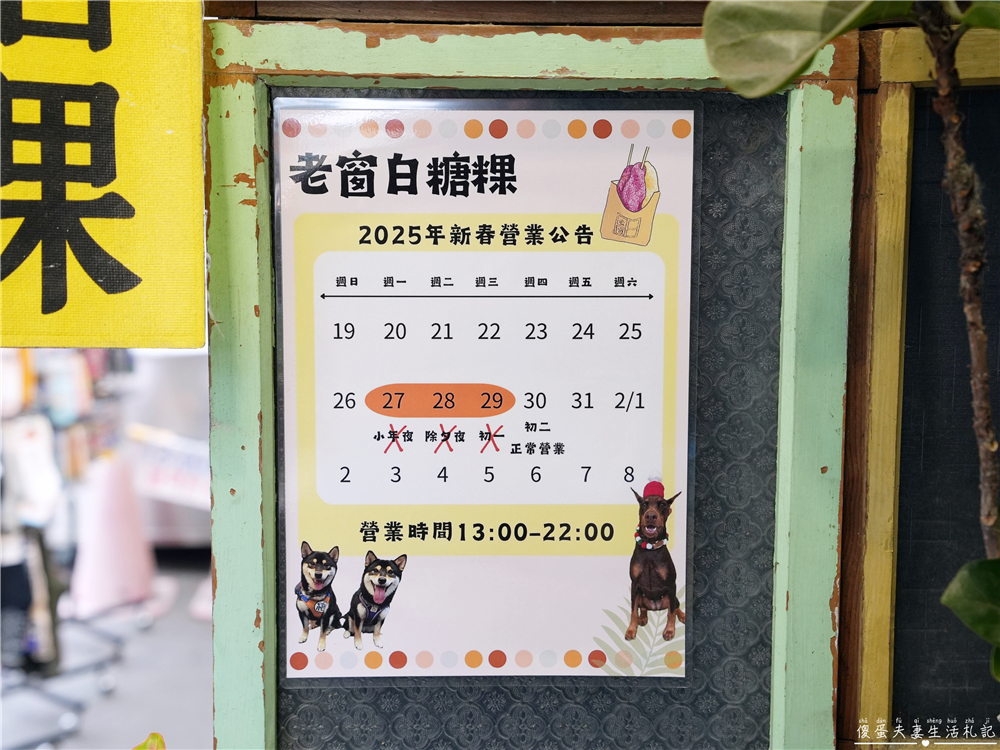 白
粿
老窗白糖粿
2025年新春營業公告
週日 週一 週二 週三 週四 週五 週六
19 20 21 22 23 24 25
26 27 28 29 30 31 2/1
小年夜 除夕夜 初一 初二
正常營業
2 3 4 5 6 7 8
營業時間13:00-22:00
shǎ dàn fū qī shēng huó zhá jì
傻蛋夫妻生活札記